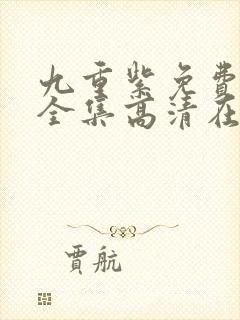 九重紫免费
全集高清在
贾航